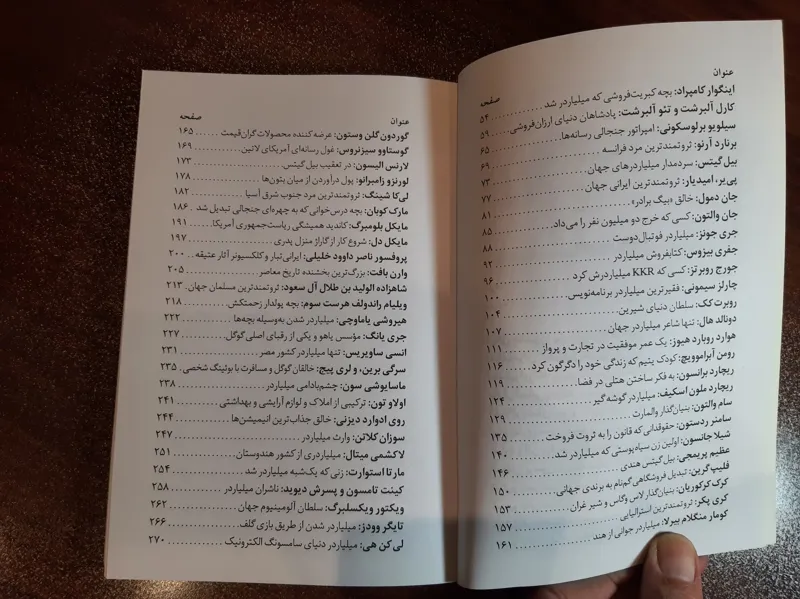 عنوان
صفحه
اینگوار کامپراد: بچه کبریت‌فروشی که میلیاردر شد . . . . . . . . . . . ۵۴
کارل آلبرشت و تئو آلبرشت: پادشاهان دنیای ارزان‌فروشی . . . ۵۹
سیلویو برلوسکونی: امپراتور جنجالی رسانه‌ها . . . . . . . . . . . ۶۵
برنارد آرنو: ثروتمندترین مرد فرانسه . . . . . . . . . . . ۶۹
بیل گیتس: سردمدار میلیاردرهای جهان . . . . . . . . . . . ۷۳
پی‌یر، امیدیار: ثروتمندترین ایرانی جهان . . . . . . . . . . . ۷۷
جان دمول: خالق «بیگ برادر» . . . . . . . . . . . ۸۱
جان والتون: کسی که خرج دو میلیون نفر را می‌داد . . . . . . . . . . . ۸۵
جری جونز: میلیاردر فوتبال‌دوست . . . . . . . . . . . ۸۸
جفری بیزوس: کتابفروش میلیاردر . . . . . . . . . . . ۹۲
جورج روبرتز: کسی که KKR میلیاردرش کرد . . . . . . . . . . . ۹۶
چارلز سیمونی: فقیرترین میلیاردر برنامه‌نویس . . . . . . . . . . . ۱۰۰
روبرت کک: سلطان دنیای شیرین . . . . . . . . . . . ۱۰۴
دونالد هال: تنها شاعر میلیاردر جهان . . . . . . . . . . . ۱۰۷
هوارد روبارد هیوز: یک عمر موفقیت در تجارت و پرواز . . . . . . . ۱۱۱
رومن آبراموویچ: کودک یتیم که زندگی خود را دگرگون کرد . . . . ۱۱۶
ریچارد برانسون: به فکر ساختن هتلی در فضا . . . . . . . . . . . ۱۱۹
ریچارد ملون اسکیف: میلیاردر گوشه‌گیر . . . . . . . . . . . ۱۲۴
سام والتون: بنیان‌گذار والمارت . . . . . . . . . . . ۱۲۹
سامنر ردستون: حقوقدانی که قانون را به ثروت فروخت . . . . . . . ۱۳۵
شیلا جانسون: اولین زن سیاه‌پوستی که میلیاردر شد . . . . . . . . ۱۴۰
عظیم پریمجی: بیل گیتس هندی . . . . . . . . . . . ۱۴۶
فلیپ گرین: تبدیل فروشگاهی گم‌نام به برندی جهانی . . . . . . . ۱۵۰
کرک کرکوریان: بنیان‌گذار لاس وگاس و شیر غران . . . . . . . . ۱۵۳
کری پکر: ثروتمندترین استرالیایی . . . . . . . . . . . ۱۵۷
کومار منگلام بیرلا: میلیاردر جوانی از هند . . . . . . . . . . . ۱۶۱
عنوان
صفحه
گوردون گلن وستون: عرضه کننده محصولات گران‌قیمت . . . . . . ۱۶۵
گوستاوو سیزنروس: غول رسانه‌ای آمریکای لاتین . . . . . . . . . . . ۱۶۹
لارنس الیسون: در تعقیب بیل گیتس . . . . . . . . . . . ۱۷۳
لورنزو زامبرانو: پول درآوردن از میان بتون‌ها . . . . . . . . . . . ۱۷۸
لی‌کا شینگ: ثروتمندترین مرد جنوب شرق آسیا . . . . . . . . . . . ۱۸۲
مارک کوبان: بچه درس‌خوانی که به چهره‌ای جنجالی تبدیل شد . ۱۸۶
مایکل بلومبرگ: کاندید همیشگی ریاست‌جمهوری آمریکا . . . . . . ۱۹۱
مایکل دل: شروع کار از گاراژ منزل پدری . . . . . . . . . . . ۱۹۷
پروفسور ناصر داوود خلیلی: ایرانی‌تبار و کلکسیونر آثار عتیقه . . . ۲۰۰
وارن بافت: بزرگ‌ترین بخشنده تاریخ معاصر . . . . . . . . . . . ۲۰۵
شاهزاده الولید بن طلال آل سعود: ثروتمندترین مسلمان جهان . ۲۱۳
ویلیام راندولف هرست سوم: بچه پولدار زحمتکش . . . . . . . . . . . ۲۱۸
هیروشی یاماوچی: میلیاردر شدن به‌وسیله بچه‌ها . . . . . . . . . . . ۲۲۲
جری یانگ: مؤسس یاهو و یکی از رقبای اصلی گوگل . . . . . . . . ۲۲۷
انسی ساویریس: تنها میلیاردر کشور مصر . . . . . . . . . . . ۲۳۱
سرگی برین، و لری پیج: خالقان گوگل و مسافرت با بوئینگ شخصی . ۲۳۵
ماسایوشی سون: چشم‌بادامی میلیاردر . . . . . . . . . . . ۲۳۸
اولاو تون: ترکیبی از املاک و لوازم آرایشی و بهداشتی . . . . . . . ۲۴۱
روی ادوارد دیزنی: خالق جذاب‌ترین انیمیشن‌ها . . . . . . . . . . . ۲۴۴
سوزان کلاتن: وارث میلیاردر . . . . . . . . . . . ۲۴۷
لاکشمی میتال: میلیاردری از کشور هندوستان . . . . . . . . . . . ۲۵۱
مارتا استوارت: زنی که یک‌شبه میلیاردر شد . . . . . . . . . . . ۲۵۴
کینت تامسون و پسرش دیوید: ناشران میلیاردر . . . . . . . . . . . ۲۵۸
ویکتور ویکسلبرگ: سلطان آلومینیوم جهان . . . . . . . . . . . ۲۶۲
تایگر وودز: میلیاردر شدن از طریق بازی گلف . . . . . . . . . . . ۲۶۶
لی کن هی: میلیاردر دنیای سامسونگ الکترونیک . . . . . . . . . . . ۲۷۰